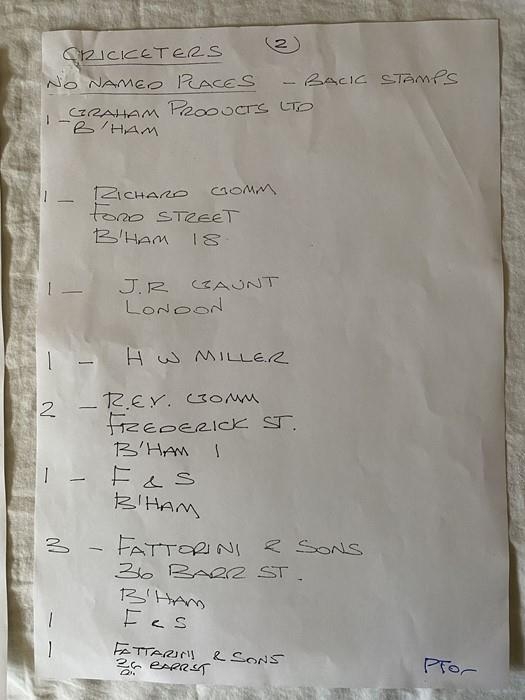 CRICKETERS (2)
NO NAMED PLACES - BACK STAMPS
1 - GRAHAM PRODUCTS LTD
B'HAM
1 - RICHARD GOMM
FORD STREET
B'HAM 18.
1 - J.R GAUNT
LONDON
1 - H W MILLER
2 - R.E.V. GOMM
FREDERICK ST.
B'HAM 1
1 - F & S
B'HAM
3 - FATTORINI & SONS
36 BARR ST.
B'HAM
1 F & S
1 FATTARINI & SONS
36 BARR ST
PTO